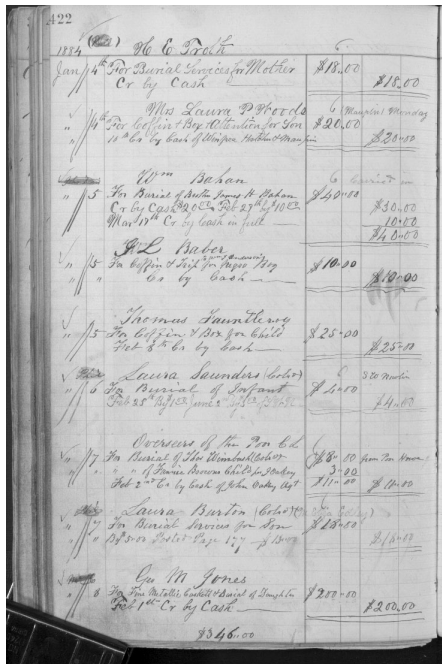 422
1884 H E Troth
Jan 4th For Burial Services for Mother $18.00
Cr by Cash $18.00
Mrs Laura P Woods
" 4th For Coffin & Box & Attention for Son $20.00
Cr by Cash of $20.00
Wm Bahan
" 5 For Burial of James H Bahan $40.00
Cr by Cash $20.00 Feb 27th by $10.00 $30.00
Mar 17th Cr by Cash in full 10.00
$40.00
J L Baber
" 5 For Coffin & for Negro Boy $10.00
" Cr by Cash $10.00
Thomas Fauntleroy
" 5 For Coffin & Box for Child $25.00
Feb 8th Cr by Cash $25.00
Laura Saunders (Cold)
" 6 For Burial of Infant $4.00
Feb 25th By $1.00 June 2nd $4.00
Overseers of the Poor
" 7 For Burial of (Cold) $8.00 from Poor House
" " " of Fannie Browns Child 3.00
Feb 2nd Cr by Cash of John Oakey Agt $11.00 $11.00
Laura Burton (Cold)
" 7 For Burial Services for Son $18.00
By 5.00 Posted Page 177
Geo M Jones
" 8 For Fine Metallic Casket & Burial of Daughter $200.00
Feb 1st Cr by Cash $200.00
$346.00